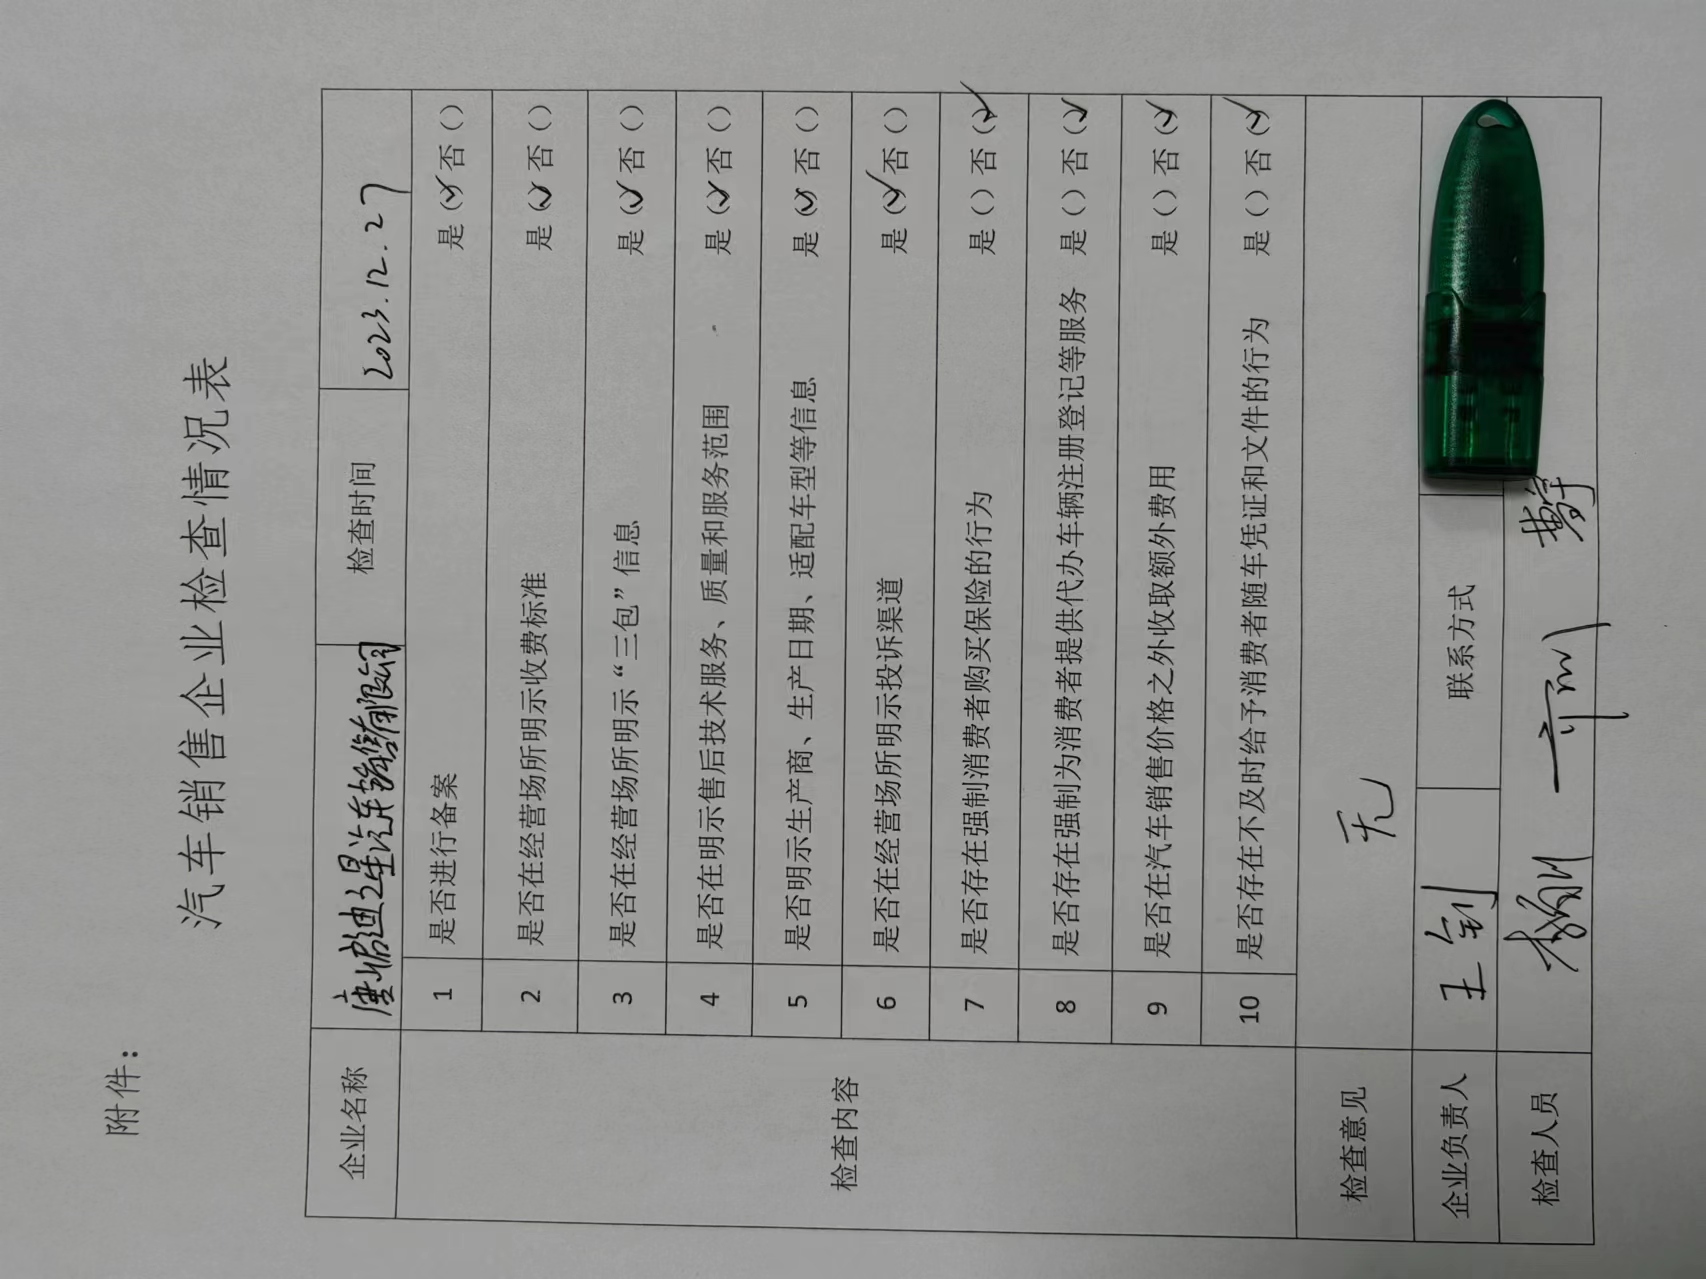 附件：
汽车销售企业检查情况表
企业名称 唐山启迪之星汽车销售有限公司 检查时间 2023.12.27
检查内容
1 是否进行备案 是（✓）否（）
2 是否在经营场所明示收费标准 是（✓）否（）
3 是否在经营场所明示“三包”信息 是（✓）否（）
4 是否在明示售后技术服务、质量和服务范围 是（✓）否（）
5 是否明示生产商、生产日期、适配车型等信息 是（✓）否（）
6 是否在经营场所明示投诉渠道 是（✓）否（）
7 是否存在强制消费者购买保险的行为 是（）否（✓）
8 是否存在强制为消费者提供代办车辆注册登记等服务 是（）否（✓）
9 是否在汽车销售价格之外收取额外费用 是（）否（✓）
10 是否存在不及时给予消费者随车凭证和文件的行为 是（）否（✓）
检查意见 无
企业负责人 王钊 联系方式
检查人员